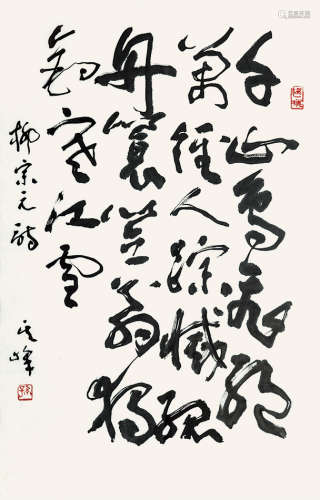 千山鳥飛絕
萬徑人踪滅孤
舟蓑笠翁独
釣寒江雪
柳宗元詩
其峰